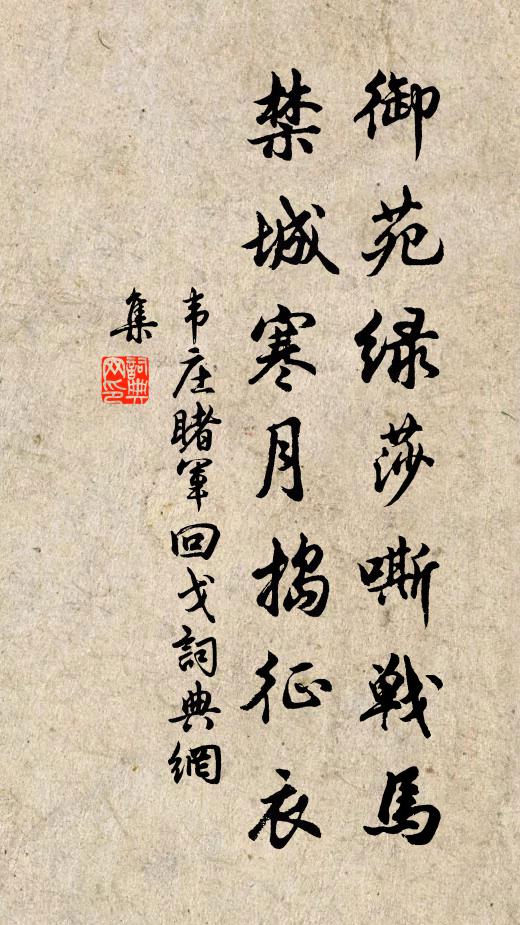 御苑绿莎嘶戦馬
禁城寒月搗征衣
韦庄睹军回戈詞典網
集
詞典網印